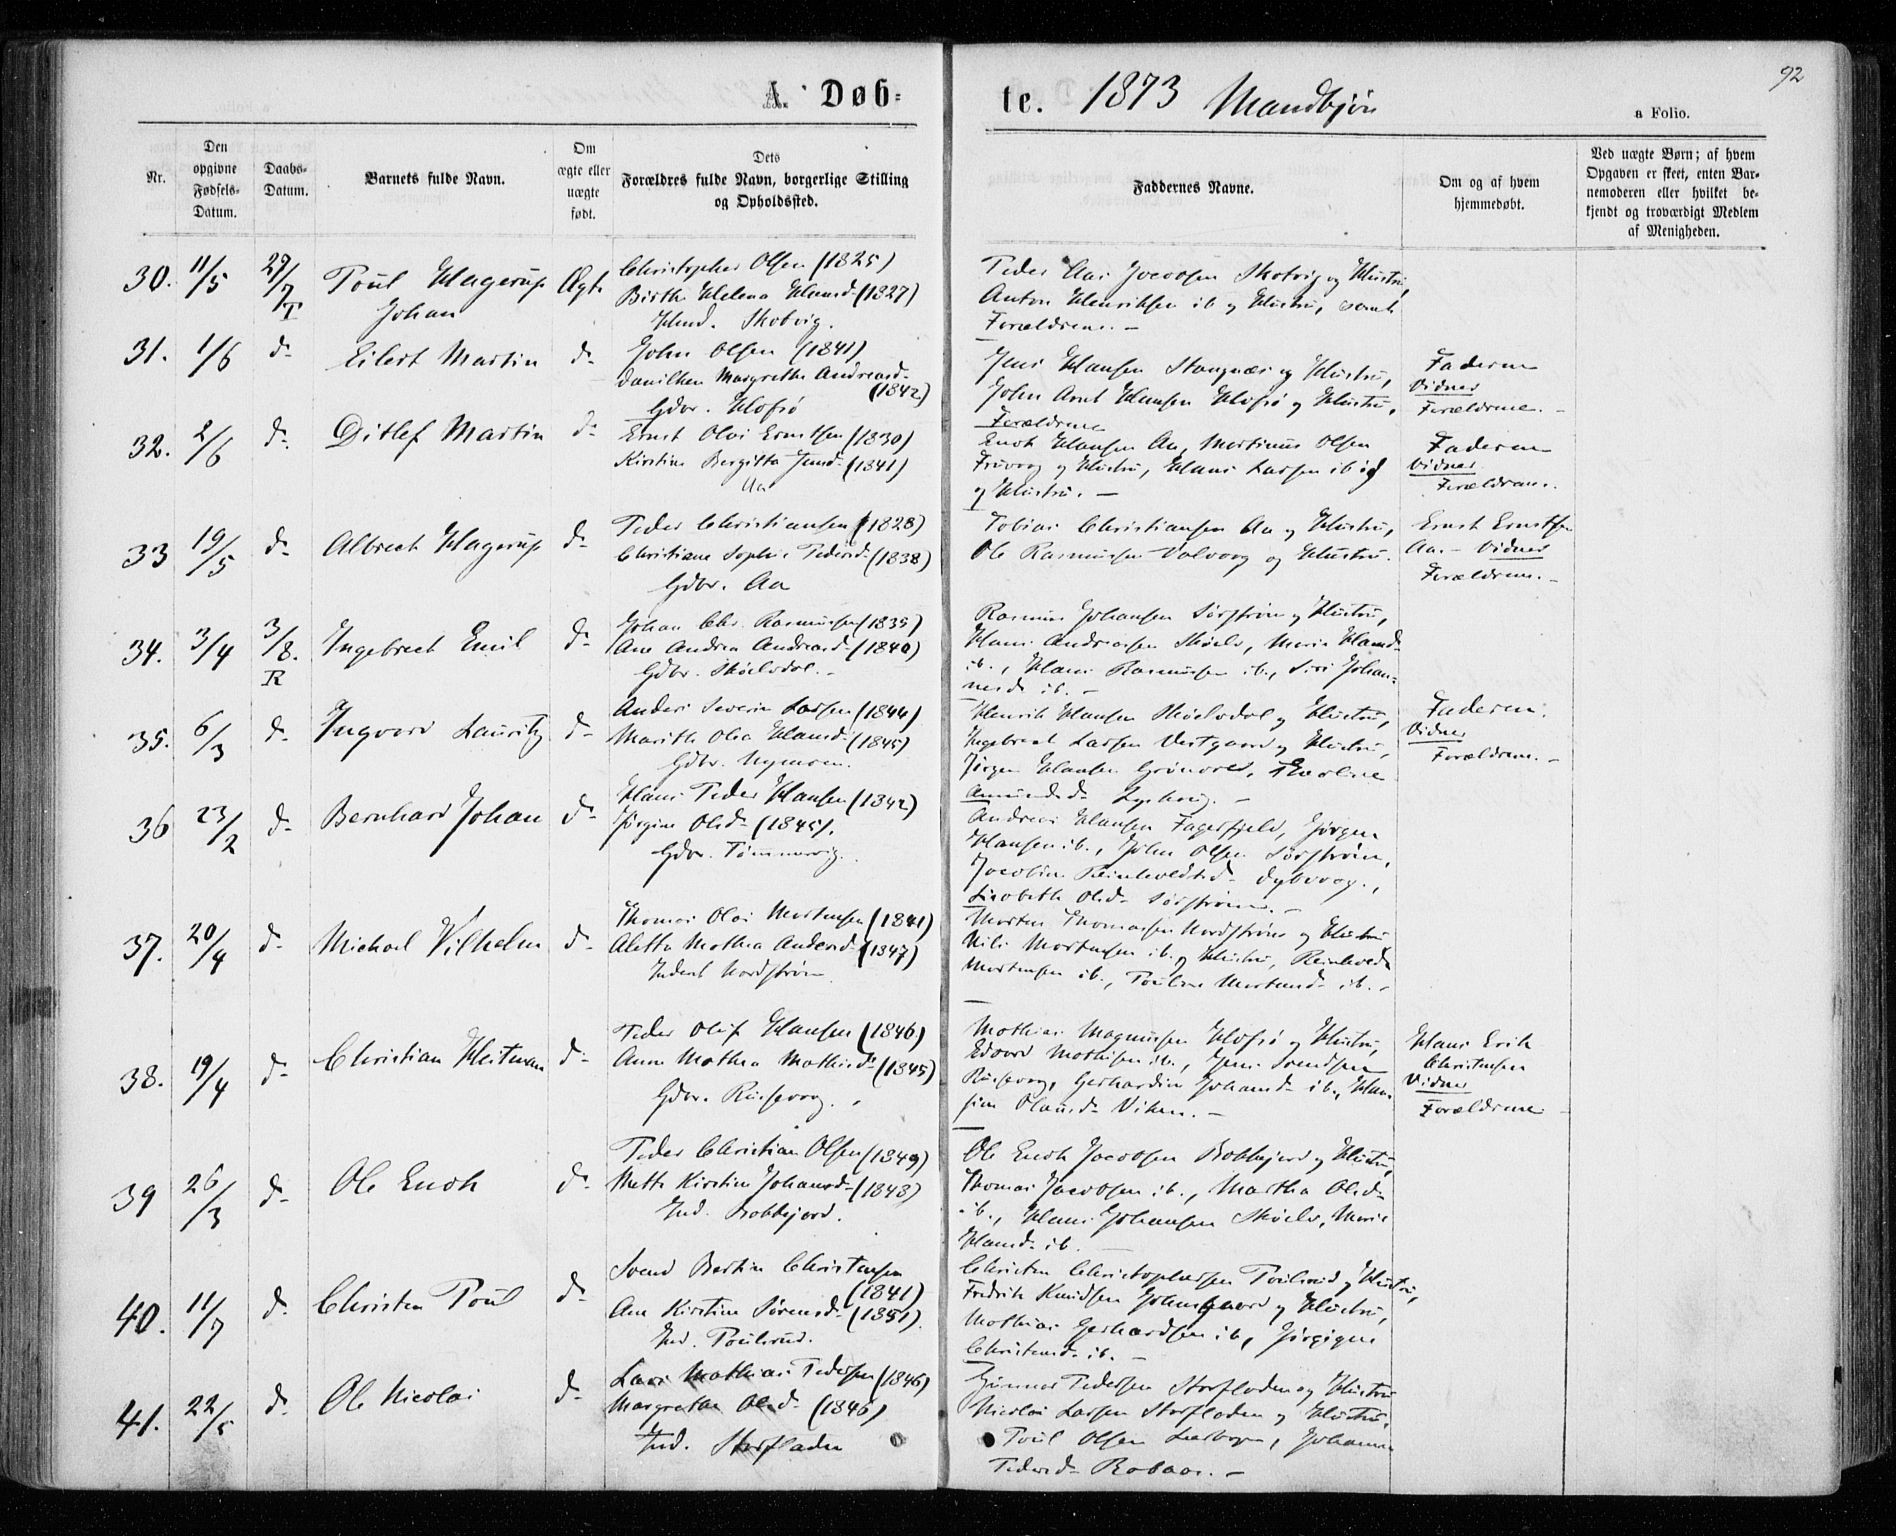 92
A. Døb-
te. 1873 Mandkjøn
a Folio.
Nr.
Den opgivne Fødsels-Datum.
Daabs-Datum.
Barnets fulde Navn.
Om ægte eller uægte født.
Dets Forældres fulde Navn, borgerlige Stilling og Opholdssted.
Faddernes Navne.
Om og af hvem hjemmedøbt.
Ved uægte Børn; af hvem Opgaven er skeet, enten Barnemoderen eller hvilket bekjendt og troværdigt Medlem af Menigheden.
30. 11/5 27/7 T Poul Hagerup Johan Ægte
Christopher Olsen (1825)
Birthe Helena Hansd. (1827)
Skotvig.
Peder Aas Jacobsen Skotvig og Hustru,
Anton Henriksen ib og Hustru, samt
Forældrene. -
31. 1/6 do Eilert Martin do
John Olsen (1841)
Margrethe Andreasd.
(1842)
Gdbr. Klofsø
Jens Hansen Stangnæs og Hustru,
John Arnt Hansen Klofsø og Hustru,
Forældrene
Faderen
Vidner
Forældrene. -
32. 2/6 do Ditlef Martin do
Ernst Olai Ernstsen (1830)
Kirstine Bergitta Jensd. (1841)
Aa
Enok Hansen Aa, Martinus Olsen
og Hustru, Hans Larsen ib
og Hustru. -
Faderen
Vidner
Forældrene.
33 19/5 do Albrect Hagerup do
Peder Christiansen (1828)
Christiane Sophie Pedersd. (1838)
Gdbr. Aa
Tobias Christiansen Aa og Hustru,
Ole Rasmussen Valvaag og Hustru.
Ernst Ernstsen
Aa. - Vidner
Forældrene. -
34. 3/4 3/8. R Ingebrect Emil do
Johan Chr. Rasmussen (1835)
Ane Andrea Andreasd. (1840)
Gdbr. Skøelvdal. -
Rasmus Johansen Sørstrøm og Hustru,
Hans Andreasen Skøelv, Marie Hansd.
ib., Hans Rasmussen ib., Siri Johan-
nesd. ib. -
35. 6/3 do Ingvard Lauritz do
Anders Severin Larsen (1844)
Marith Olea Hansd. (1845)
Gdbr. Nymoen.
Henrik Hansen Skøelvdal og Hustru,
Ingebrect Larsen Vestgaard og Hustru,
Jørgen Hansen Grønvold,
Amundsd.
Faderen.
Vidner
Forældrene. -
36 23/2 do Bernhard Johan do
Hans Peder Hansen (1842)
Jørgine Olsd. (1845).
Gdbr. Tømmervig.
Andreas Hansen Fagerfjeld, Jørgen
Hansen ib., John Olsen Sørstrøm,
Jacobine Reinholdtsd. Dybvaag.,
Lisabeth Olsd. Sørstrøm. -
37. 20/4 do Michael Vilhelm do
Thomas Olai Mortensen (1841)
Aletta Mathea Andersd. (1847)
Inderst Nordstrøm
Morten Thomassen Nordstrøm og Hustru
Nils Mortensen ib. og Hustru, Reinhold
Mortensen ib., Pauline Mortensd. ib. -
38. 19/4 do Christian Heitman do
Peder Oluf Hansen (1846)
Anne Mathea Mathisd. (1845)
Gdbr. Russevaag.
Mathias Magnussen Klofsø og Hustru,
Edvard Mathisen ib., Jens Svendsen
Russevaag, Gerhardine Johansd. ib., Han-
sine Olausd. Viken. -
Hans Erik
Christensen
Vidner
Forældrene -
39 26/3 do Ole Enok do
Peder Christian Olsen (1849)
Mette Kirstine Johansd. (1848)
Ind. Bobbejord.
Ole Enok Jacobsen Bobbejord og Hustru,
Thomas Jacobsen ib., Martha Olsd.
ib., Hans Johansen Skøelv, Marie
Hansd. ib.
40. 11/7 do Christen Poul do
Svend Bertin Christensen
(1841)
Ane Kirstine Sørensd. (1851).
Ind. Poulsrud.
Christen Christophersen Poulsrud og Hustru,
Fredrik Knudsen Johnsgaard og Hustru,
Mathias Gerhardsen ib.,
Christensd. ib. -
41. 22/5 do Ole Nicolai do
Lars Mathias Pedersen (1846)
Margrethe Olsd. (1846)
Ind. Storfladen
Gunnar Pedersen Storfladen og Hustru
Nicolai Larsen Storfladen og Hustru,
Poul Olsen, Johanna
Pedersd. -